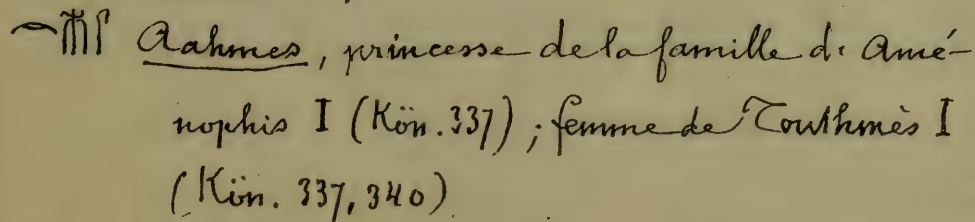 𓇹𓄟𓋴 Aahmes, princesse de la famille d'Amé-
nophis I (Kön. 337); femme de Touthmès I
(Kön. 337, 340)